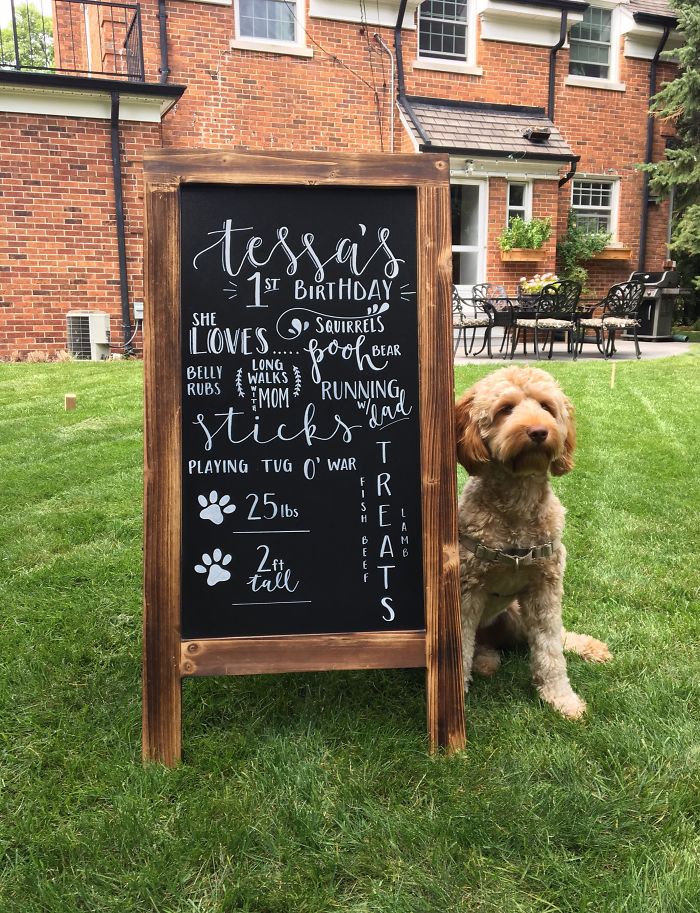 tessa's
1ST BIRTHDAY
SHE
LOVES.....
SQUIRRELS
pooh BEAR
BELLY
RUBS
LONG
WALKS
WITH
MOM
RUNNING
w/ dad
sticks
PLAYING TUG O' WAR
25 lbs
2ft
tall
FISH BEEF
TREATS
LAMB